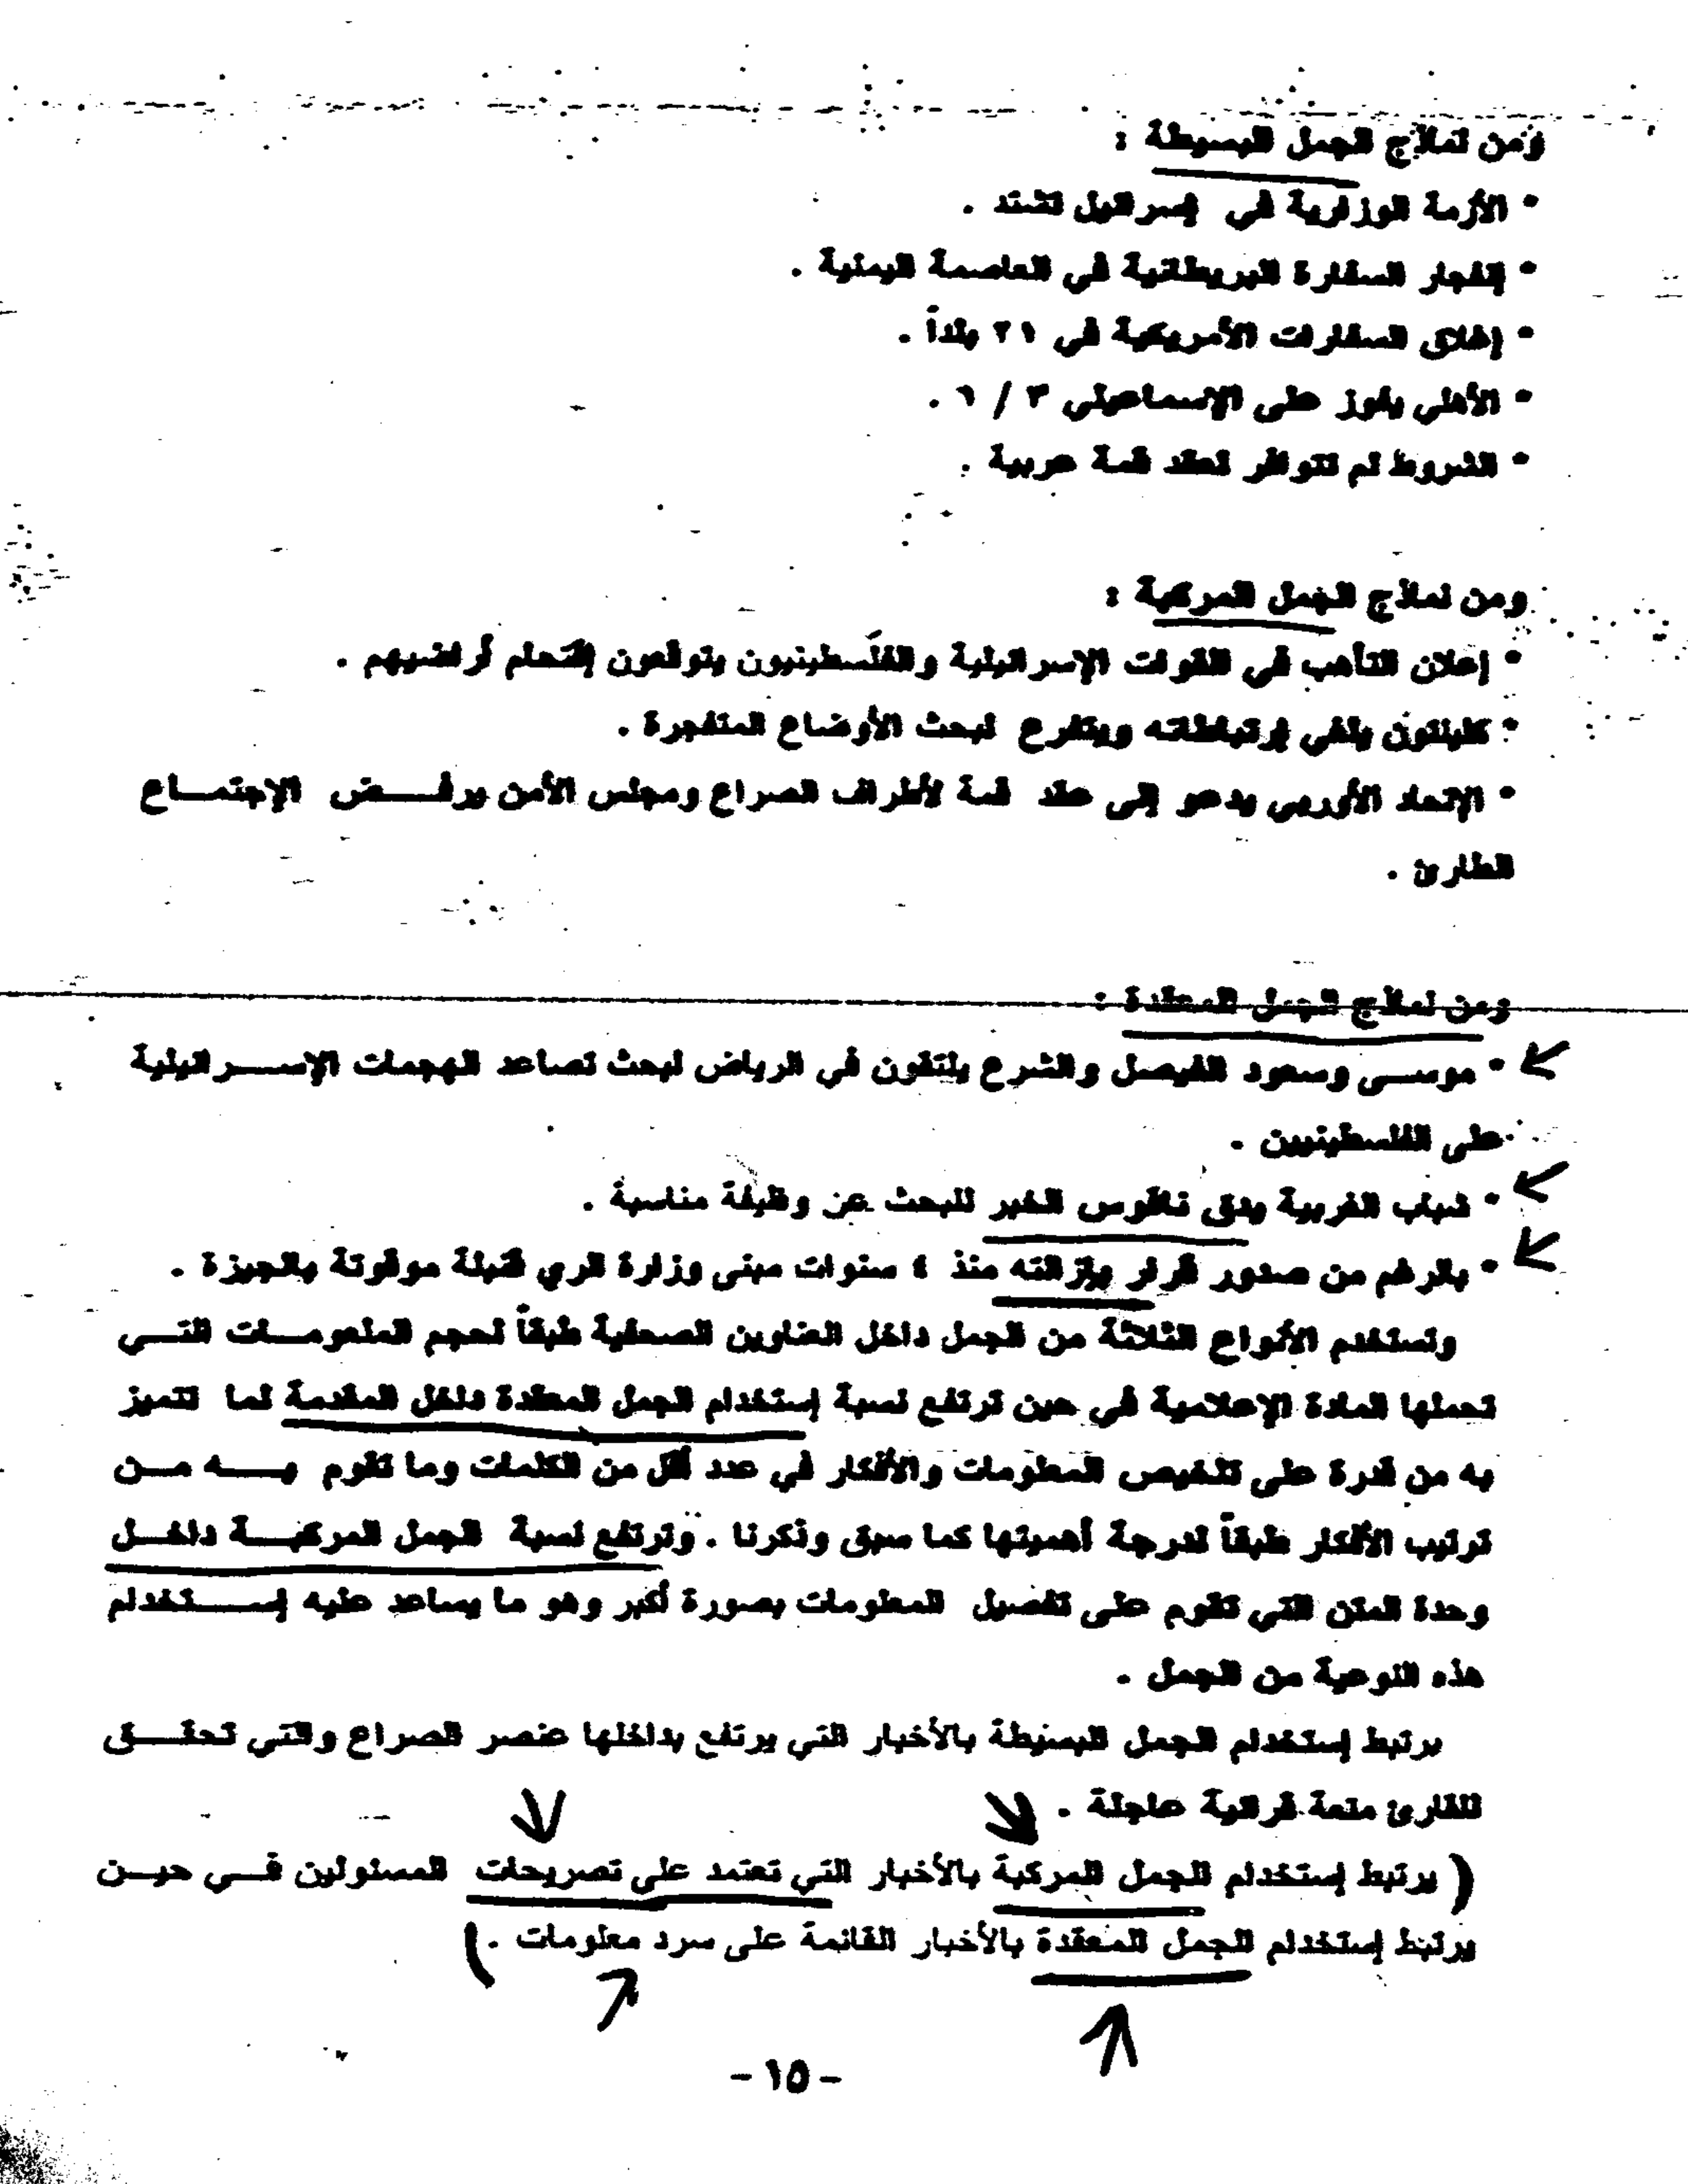 ومن نماذج الجمل البسيطة :
• الأزمة الوزارية في إسرائيل تشتد .
• إنفجار السفارة البريطانية في العاصمة اليمنية .
• إغلاق السفارات الأمريكية في ٢١ بلداً .
• الأهلي يفوز على الإسماعيلي ٣ / ٦ .
• الشروط لم تتوافر لعقد قمة عربية .
ومن نماذج الجمل المركبة :
• إعلان التأهب في القوات الإسرائيلية والفلسطينيون يتوقعون إقتحام أراضيهم .
• كلينتون يلغي إرتباطاته ويتفرغ لبحث الأوضاع المتفجرة .
• الإتحاد الأوربي يدعو إلى عقد قمة لأطراف الصراع ومجلس الأمن يرفض الإجتماع
الطارئ .
ومن نماذج الجمل المعقدة :
• موسى وسعود الفيصل والشرع يلتقون في الرياض لبحث تصاعد الهجمات الإسرائيلية
على الفلسطينيين .
• شباب الغربية يدق ناقوس الخبر للبحث عن وظيفة مناسبة .
• بالرغم من صدور قرار بإزالته منذ ٤ سنوات مبنى وزارة الري قنبلة موقوتة بالجيزة .
وتستخدم الأنواع الثلاثة من الجمل داخل العناوين الصحفية طبقاً لحجم المعلومات التي
تحملها المادة الإعلامية في حين ترتفع نسبة إستخدام الجمل المعقدة داخل المقدمة لما تتميز
به من قدرة على تلخيص المعلومات والأفكار في عدد أقل من الكلمات وما تقوم به من
ترتيب الأفكار طبقاً لدرجة أهميتها كما سبق وذكرنا . وترتفع نسبة الجمل المركبة داخل
وحدة المتن التي تقوم على تفصيل المعلومات بصورة أكبر وهو ما يساعد عليه إستخدام
هذه النوعية من الجمل .
يرتبط إستخدام الجمل البسيطة بالأخبار التي يرتفع بداخلها عنصر الصراع والتي تحقق
للقارئ متعة قرائية عاجلة .
( يرتبط إستخدام الجمل المركبة بالأخبار التي تعتمد على تصريحات المسئولين في حين
يرتبط إستخدام الجمل المعقدة بالأخبار القائمة على سرد معلومات . )
- ١٥ -